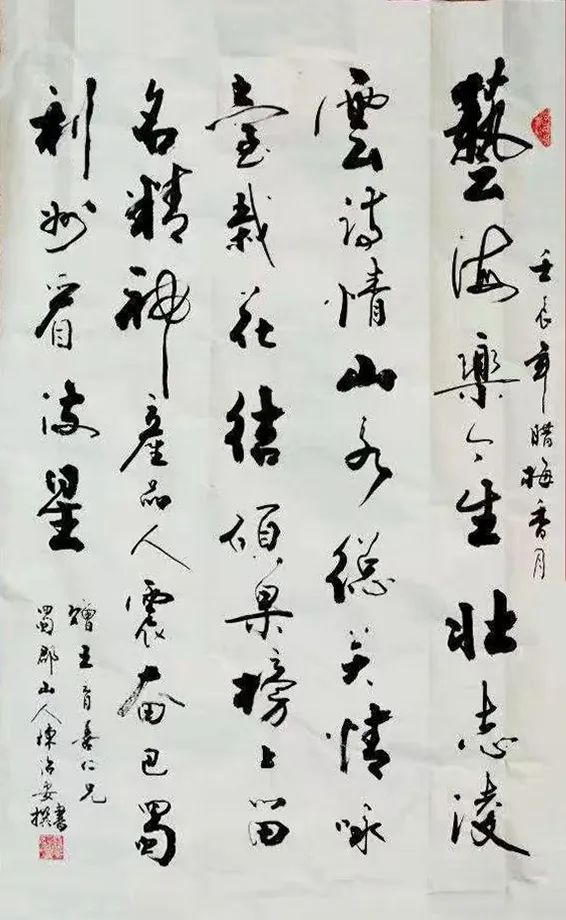 壬辰年腊梅香月
藝海樂今生壮志凌
雲詩情山水總关情咏
臺栽花結碩果榜上留
名精神産品人震奋巴蜀
利州星
贈王育喜仁兄
蜀郡山人陳治安撰書